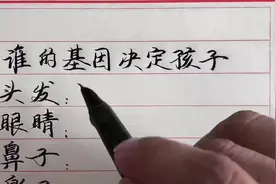 谁的基因决定孩子
头发：
眼睛：
鼻子：